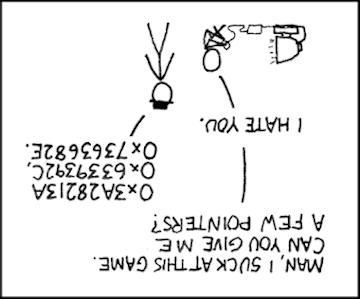 MAN, I SUCK AT THIS GAME.
CAN YOU GIVE ME
A FEW POINTERS?
0x3A28213A
0x6339392C,
0x7363682E.
I HATE YOU.